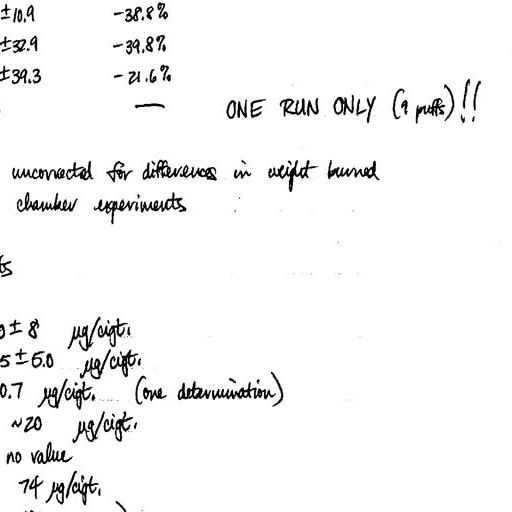 ±10.9 -38.8%
±32.9 -39.8%
±39.3 -21.6%
— ONE RUN ONLY (9 puffs)!!
uncorrected for differences in weight burned
chamber experiments
ts
± 8 µg/cigt.
5 ± 5.0 µg/cigt.
0.7 µg/cigt. (one determination)
~20 µg/cigt.
no value
74 µg/cigt.